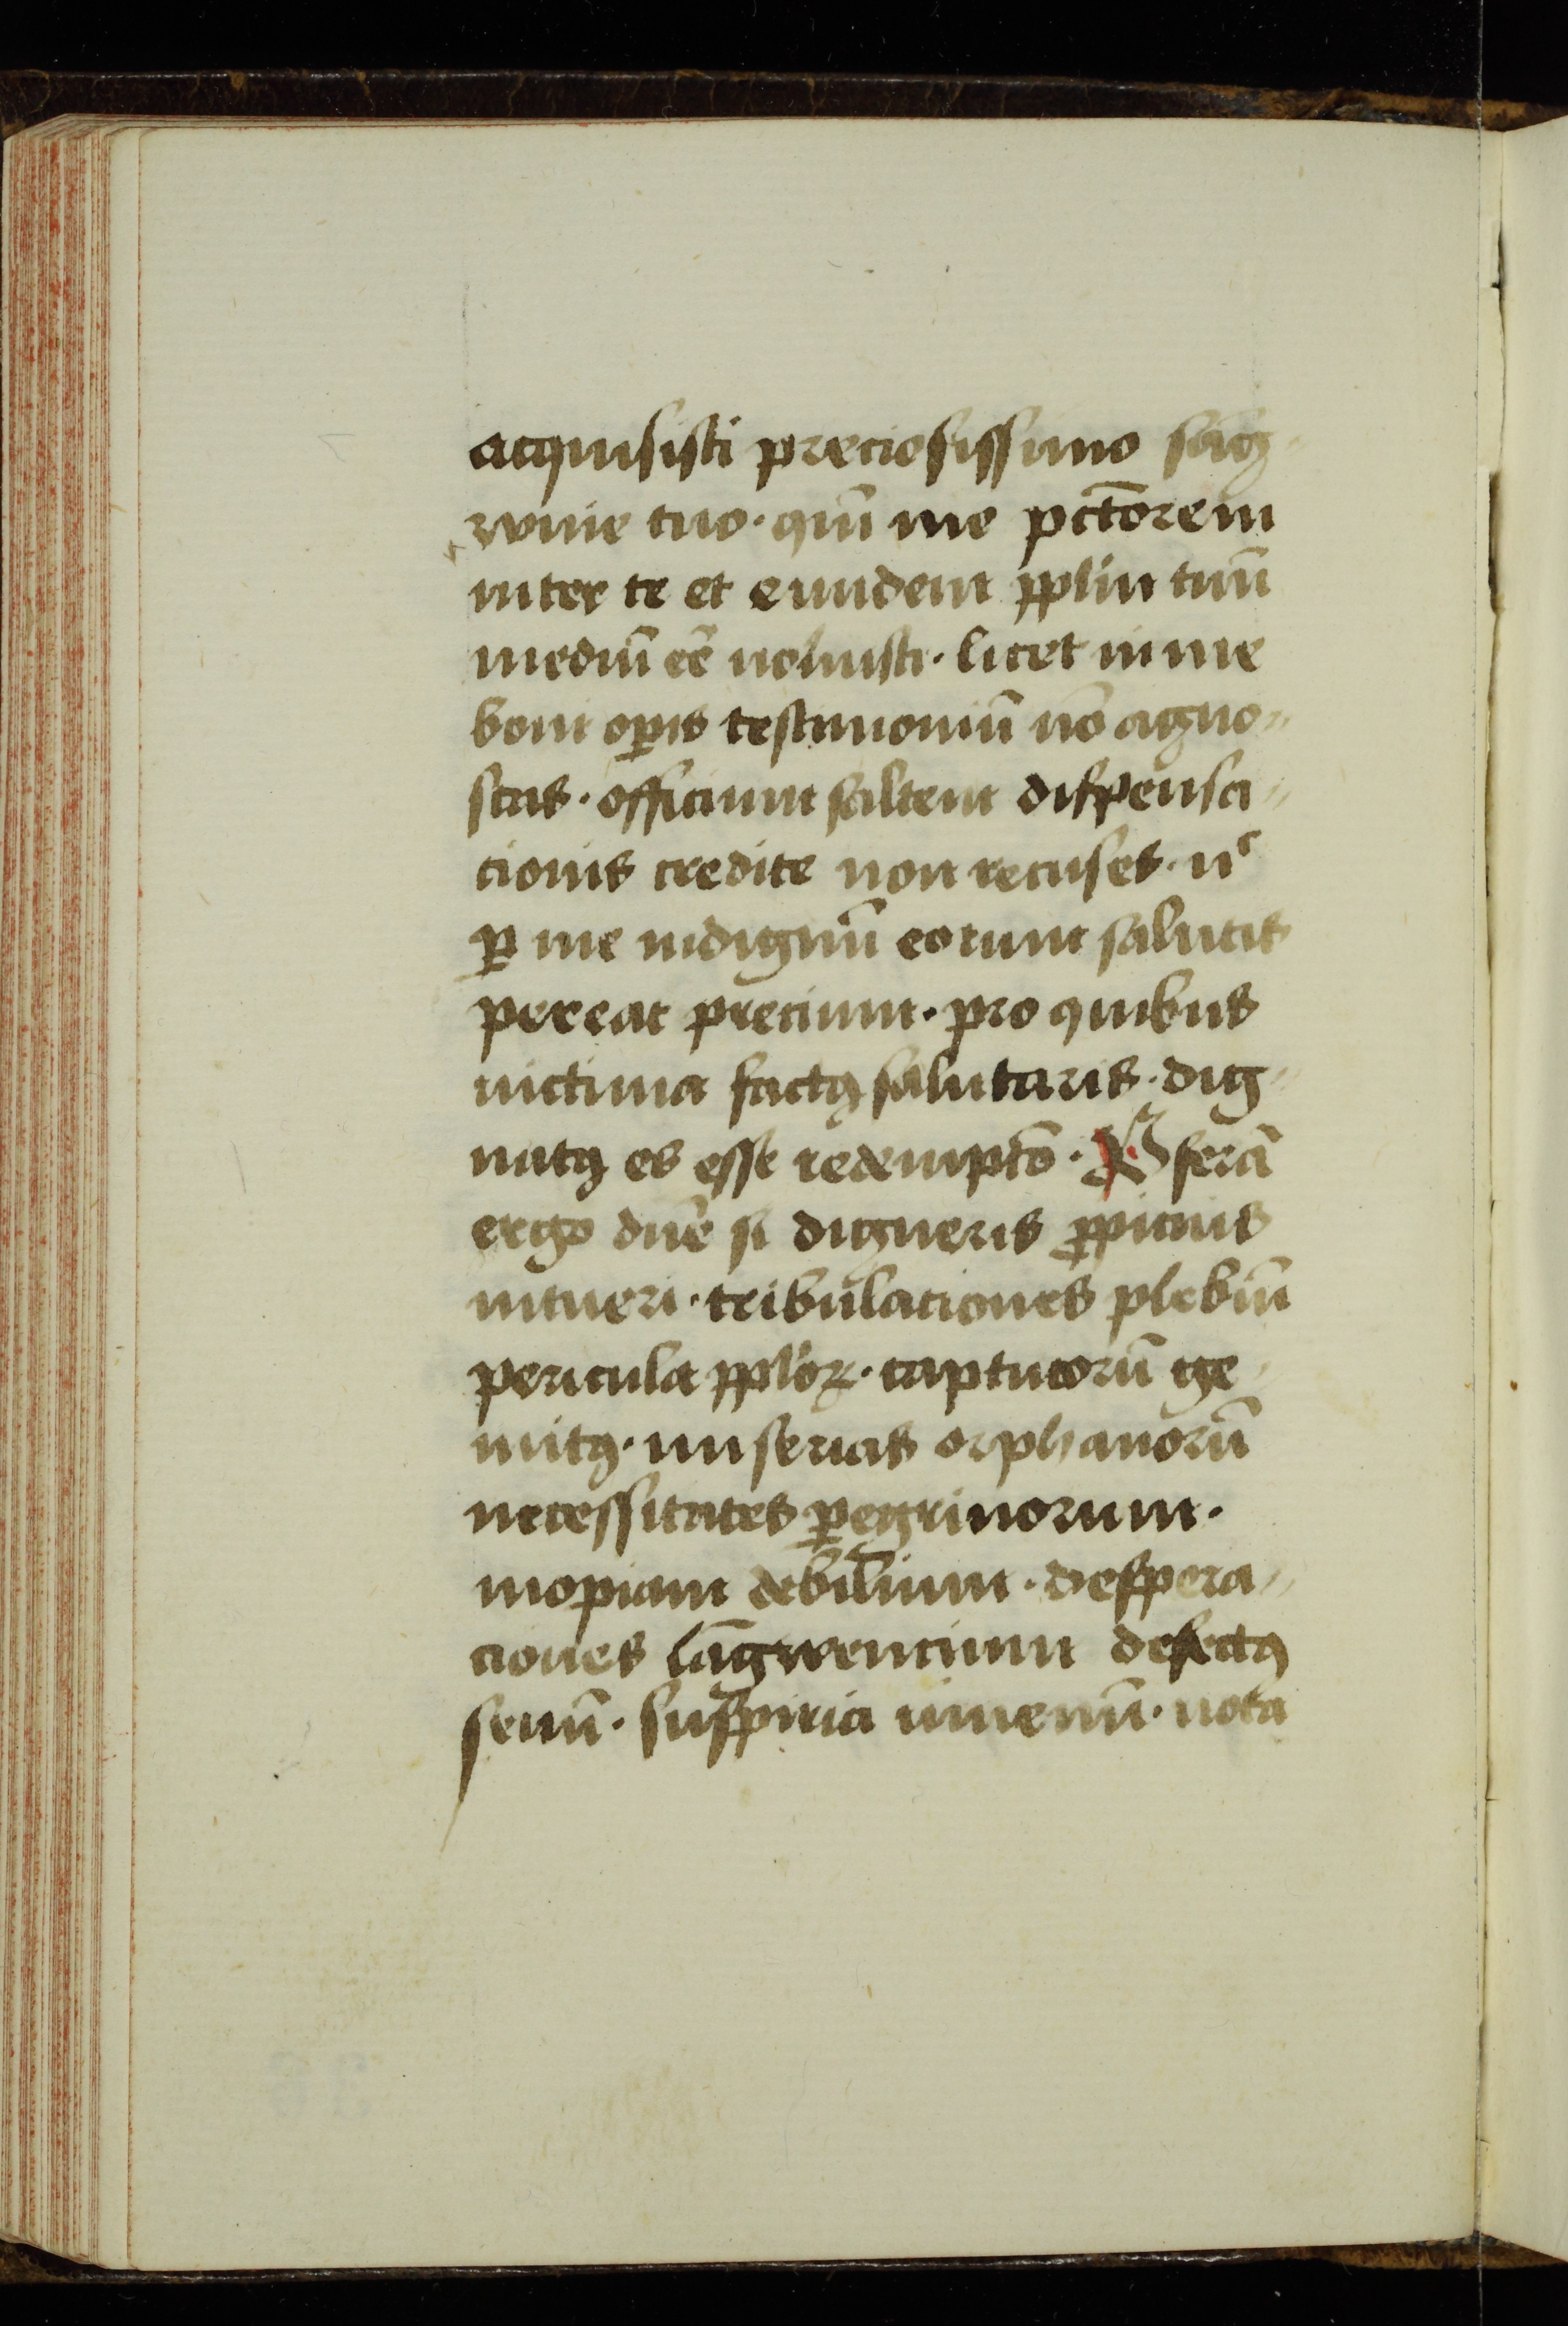 acquisisti preciosissimo sāg-
wine tuo. quī me pct̄orem
inter te et eundem pplm̄ tuū
mediū eē uoluisti. licet in me
boni oꝑis testimoniū nō agno-
scas. officium saltem dispensa-
cionis credite non recuses. nͨ
ꝑ me indignū eorum salutis
pereat precium. pro quibus
uictima factꝰ salutaris. dig-
natꝰ es esse redempto᷑. Pferā
ergo dn̄e si digneris ꝓpicius
intueri. tribulaciones plebiū
pericula pplōꝝ. captiuorū ge-
mitꝰ. miserias orphanorū
necessitates ꝑegrinorum.
inopiam debilium. despera-
ciones lāgwencium defectꝰ
senū. suspiria iuuenū. uota